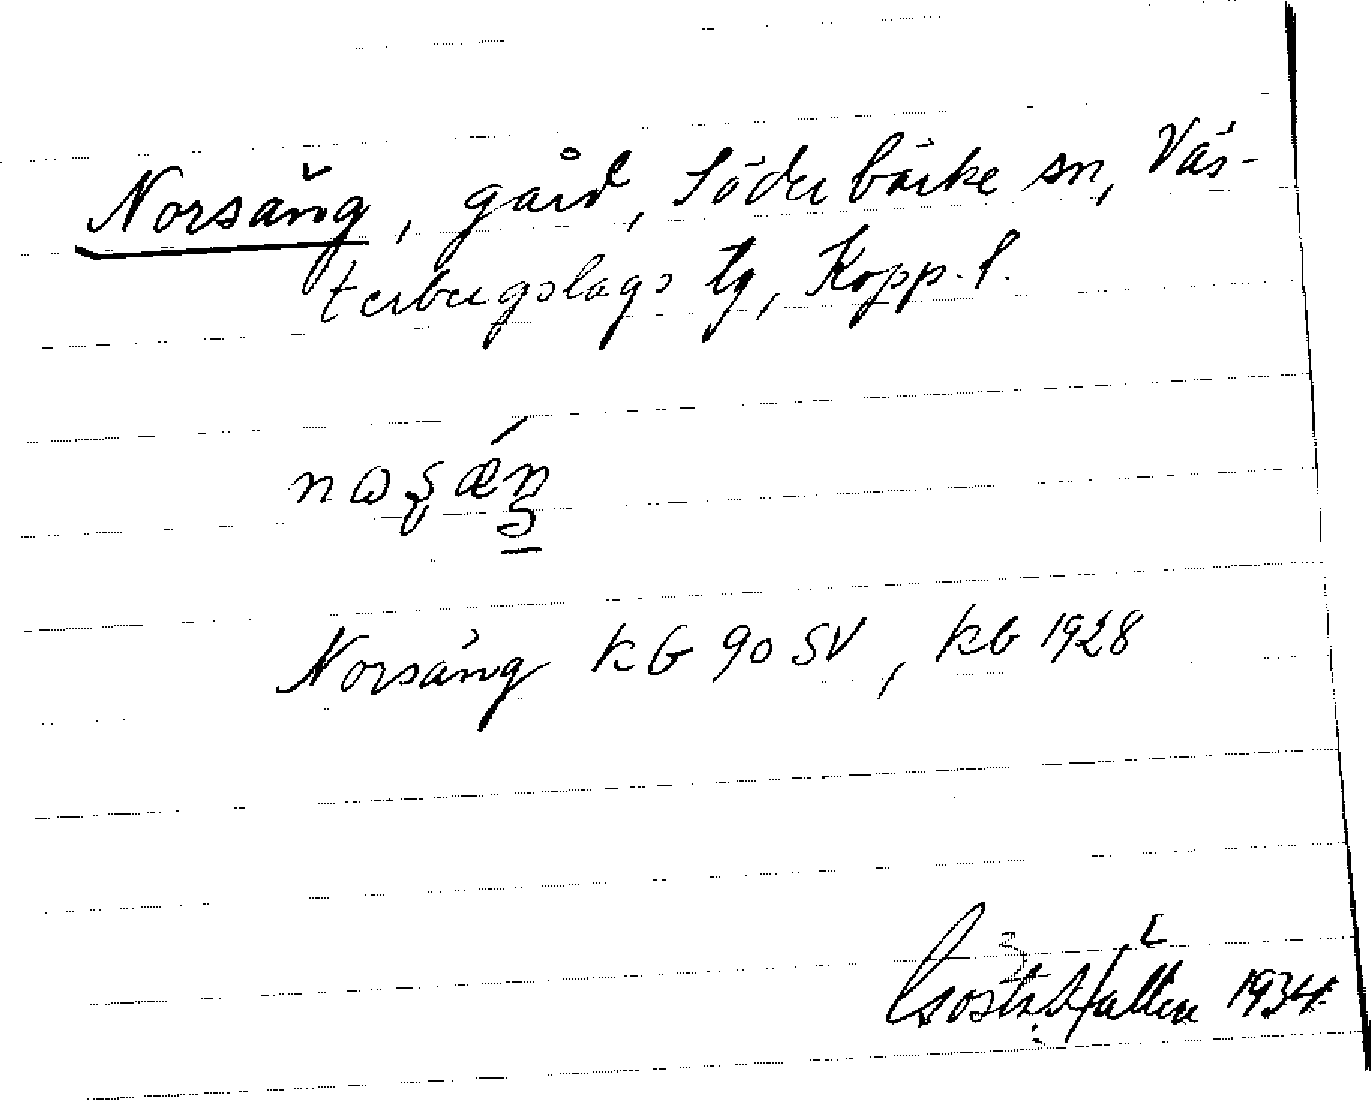 Norsäng, gård, Söderbärke sn, Väs-
terbergslags tg, Kopp. l.
Norsäng KB 90 SV, KB 1928
Gösta Hållen 1934